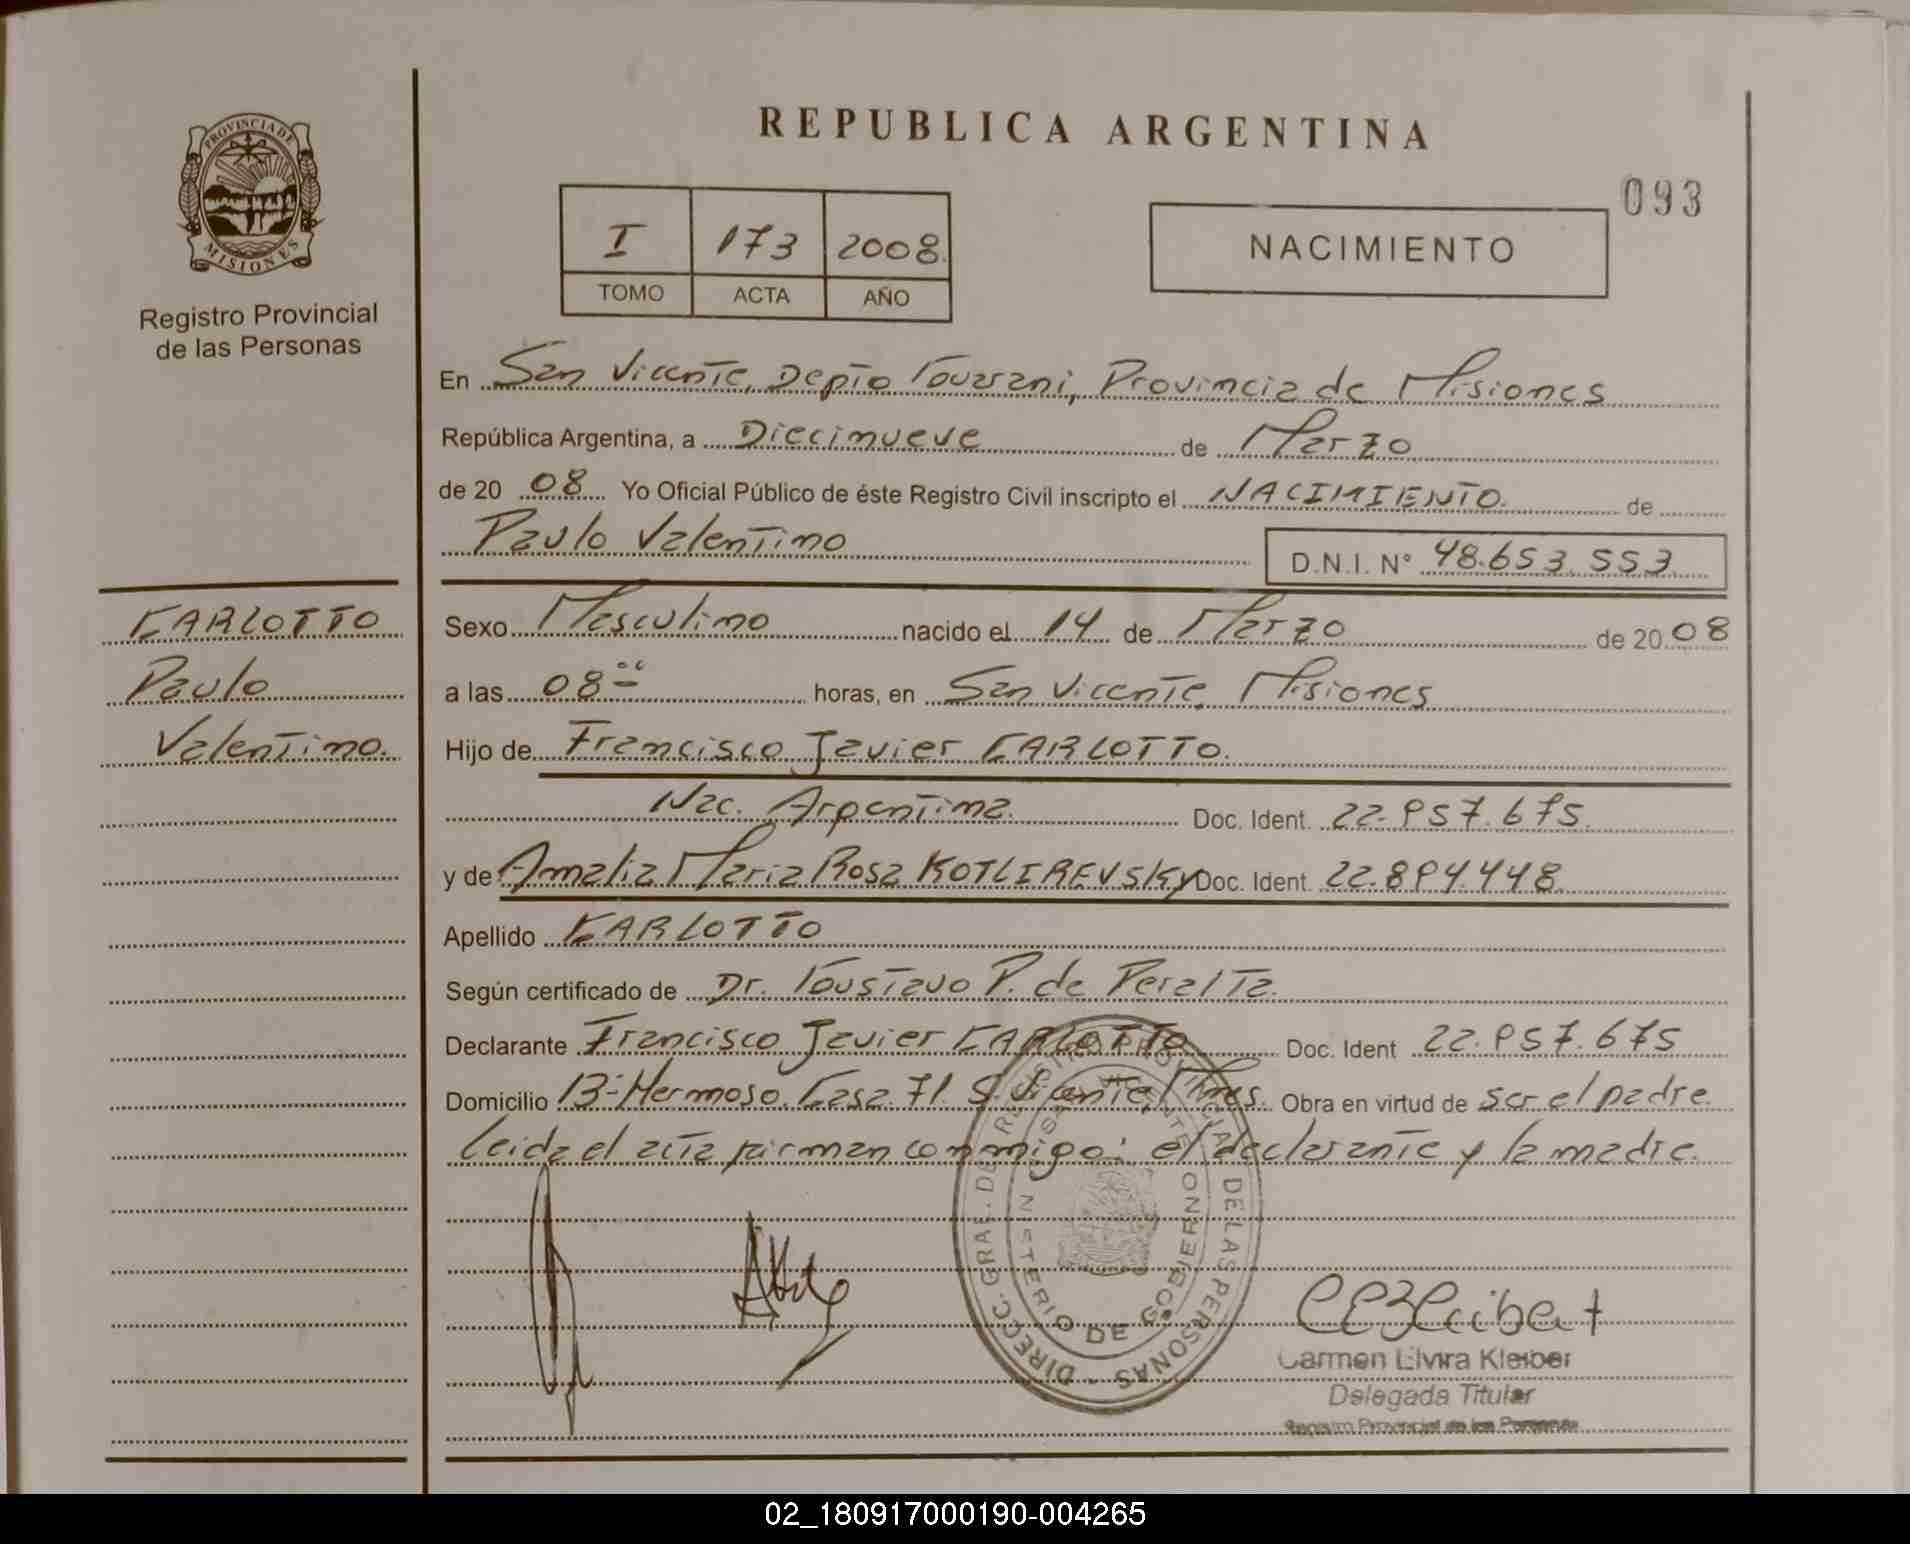 REPUBLICA ARGENTINA
093
PROVINCIA DE
MISIONES
Registro Provincial
de las Personas
I 173 2008
TOMO ACTA AÑO
NACIMIENTO
En San Vicente, Depto Guarani, Provincia de Misiones
República Argentina, a Diecinueve de Marzo
de 20 08 Yo Oficial Público de éste Registro Civil inscripto el NACIMIENTO de
Paulo Valentino
D.N.I. N° 48.653.553
CARLOTTO
Paulo
Valentino.
Sexo Masculino nacido el 14 de Marzo de 20 08
a las 08 horas, en San Vicente, Misiones
Hijo de Francisco Javier CARLOTTO.
Nac. Argentina. Doc. Ident. 22.957.675.
y de Amalia Maria Rosa KOTLIREVSKY Doc. Ident. 22.894.448
Apellido CARLOTTO
Según certificado de Dr. Gustavo P. de Peralta.
Declarante Francisco Javier CARLOTTO Doc. Ident 22.957.675
Domicilio B° Hermoso. Casa 71. S. Vicente, Mnes. Obra en virtud de ser el padre
Leida el acta firman conmigo: el declarante y la madre.
DIRECC. GRAL. DE REGISTRO PROVINCIAL DE LAS PERSONAS -
SAN VICENTE
MINISTERIO DE GOBIERNO
Carmen Elvira Kleiber
Delegada Titular
Registro Provincial de las Personas
02_180917000190-004265